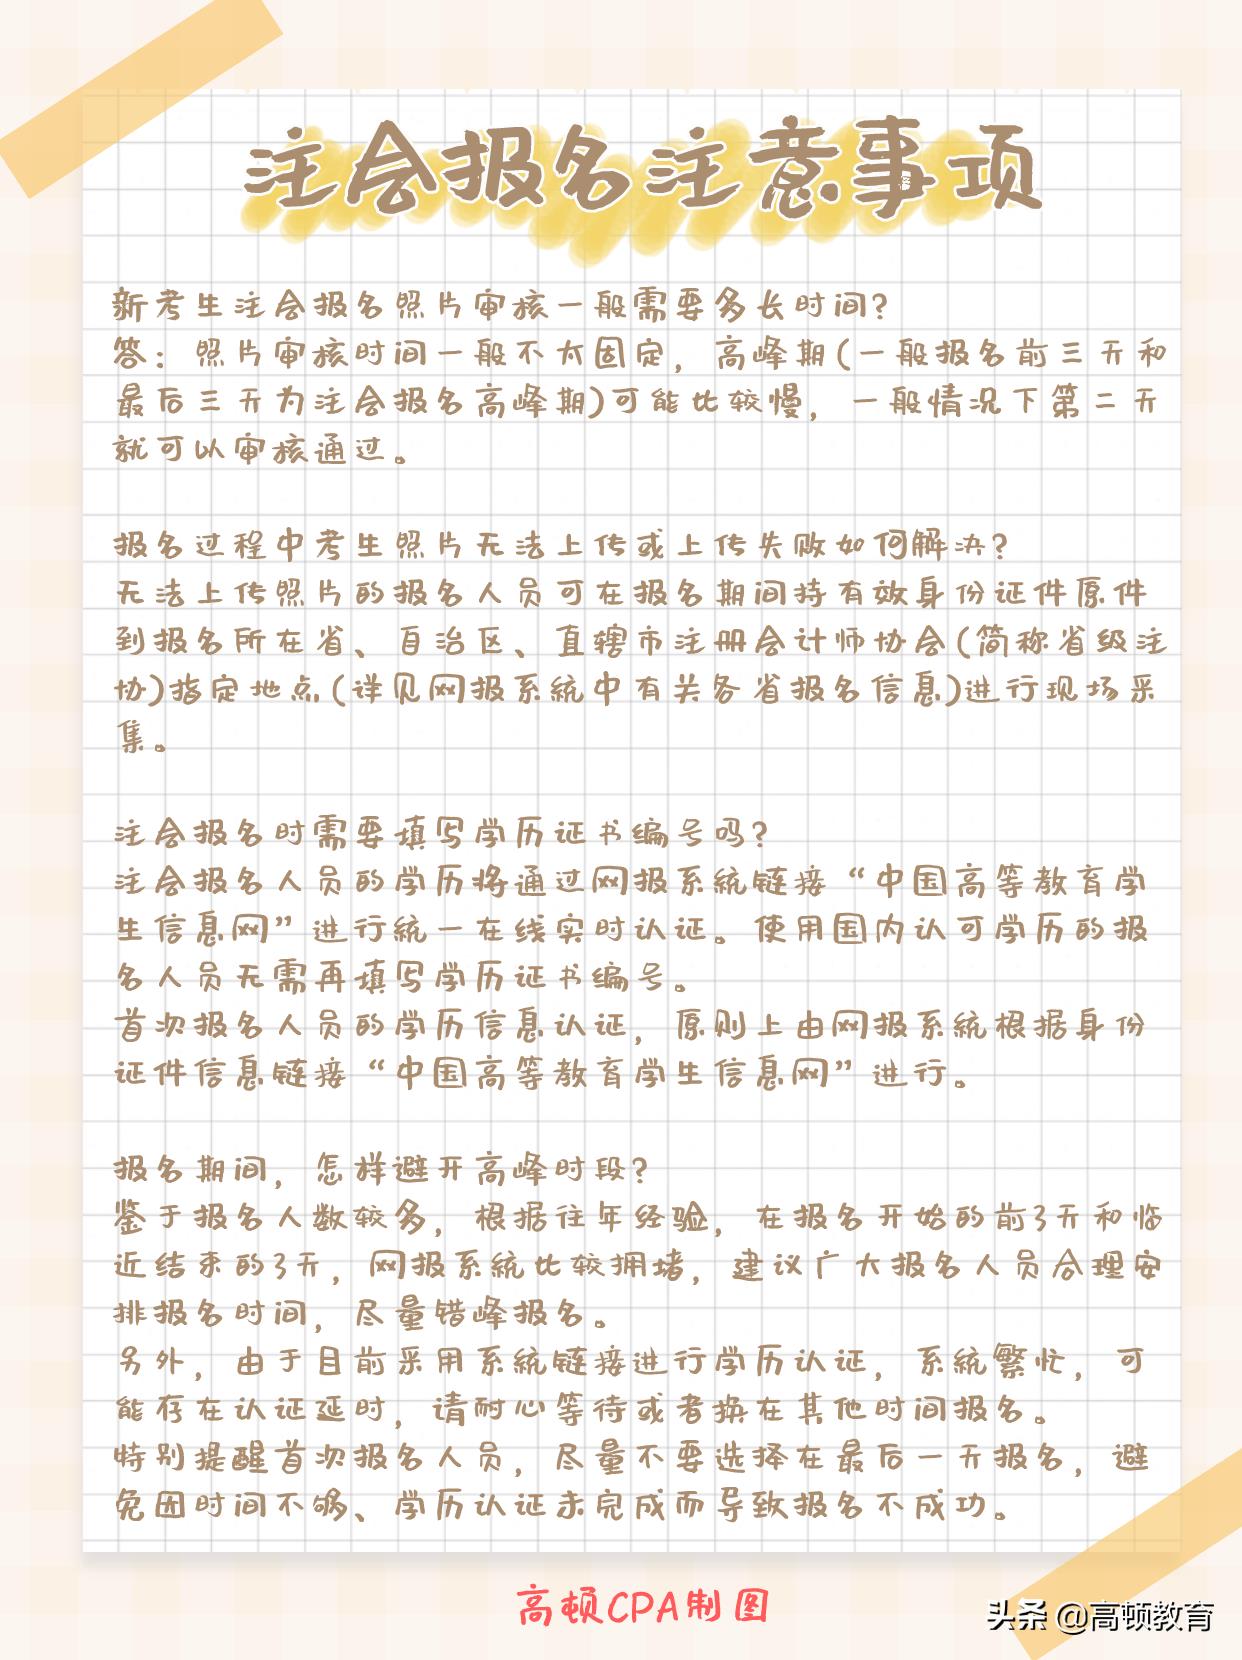 注会报名注意事项
新考生注会报名照片审核一般需要多长时间?
答：照片审核时间一般不太固定，高峰期(一般报名前三天和
最后三天为注会报名高峰期)可能比较慢，一般情况下第二天
就可以审核通过。
报名过程中考生照片无法上传或上传失败如何解决?
无法上传照片的报名人员可在报名期间持有效身份证件原件
到报名所在省、自治区、直辖市注册会计师协会(简称省级注
协)指定地点(详见网报系统中有关各省报名信息)进行现场采
集。
注会报名时需要填写学历证书编号吗?
注会报名人员的学历将通过网报系统链接“中国高等教育学
生信息网”进行统一在线实时认证。使用国内认可学历的报
名人员无需再填写学历证书编号。
首次报名人员的学历信息认证，原则上由网报系统根据身份
证件信息链接“中国高等教育学生信息网”进行。
报名期间，怎样避开高峰时段?
鉴于报名人数较多，根据往年经验，在报名开始的前3天和临
近结束的3天，网报系统比较拥堵，建议广大报名人员合理安
排报名时间，尽量错峰报名。
另外，由于目前采用系统链接进行学历认证，系统繁忙，可
能存在认证延时，请耐心等待或者换在其他时间报名。
特别提醒首次报名人员，尽量不要选择在最后一天报名，避
免因时间不够、学历认证未完成而导致报名不成功。
高顿CPA制图
头条 @高顿教育